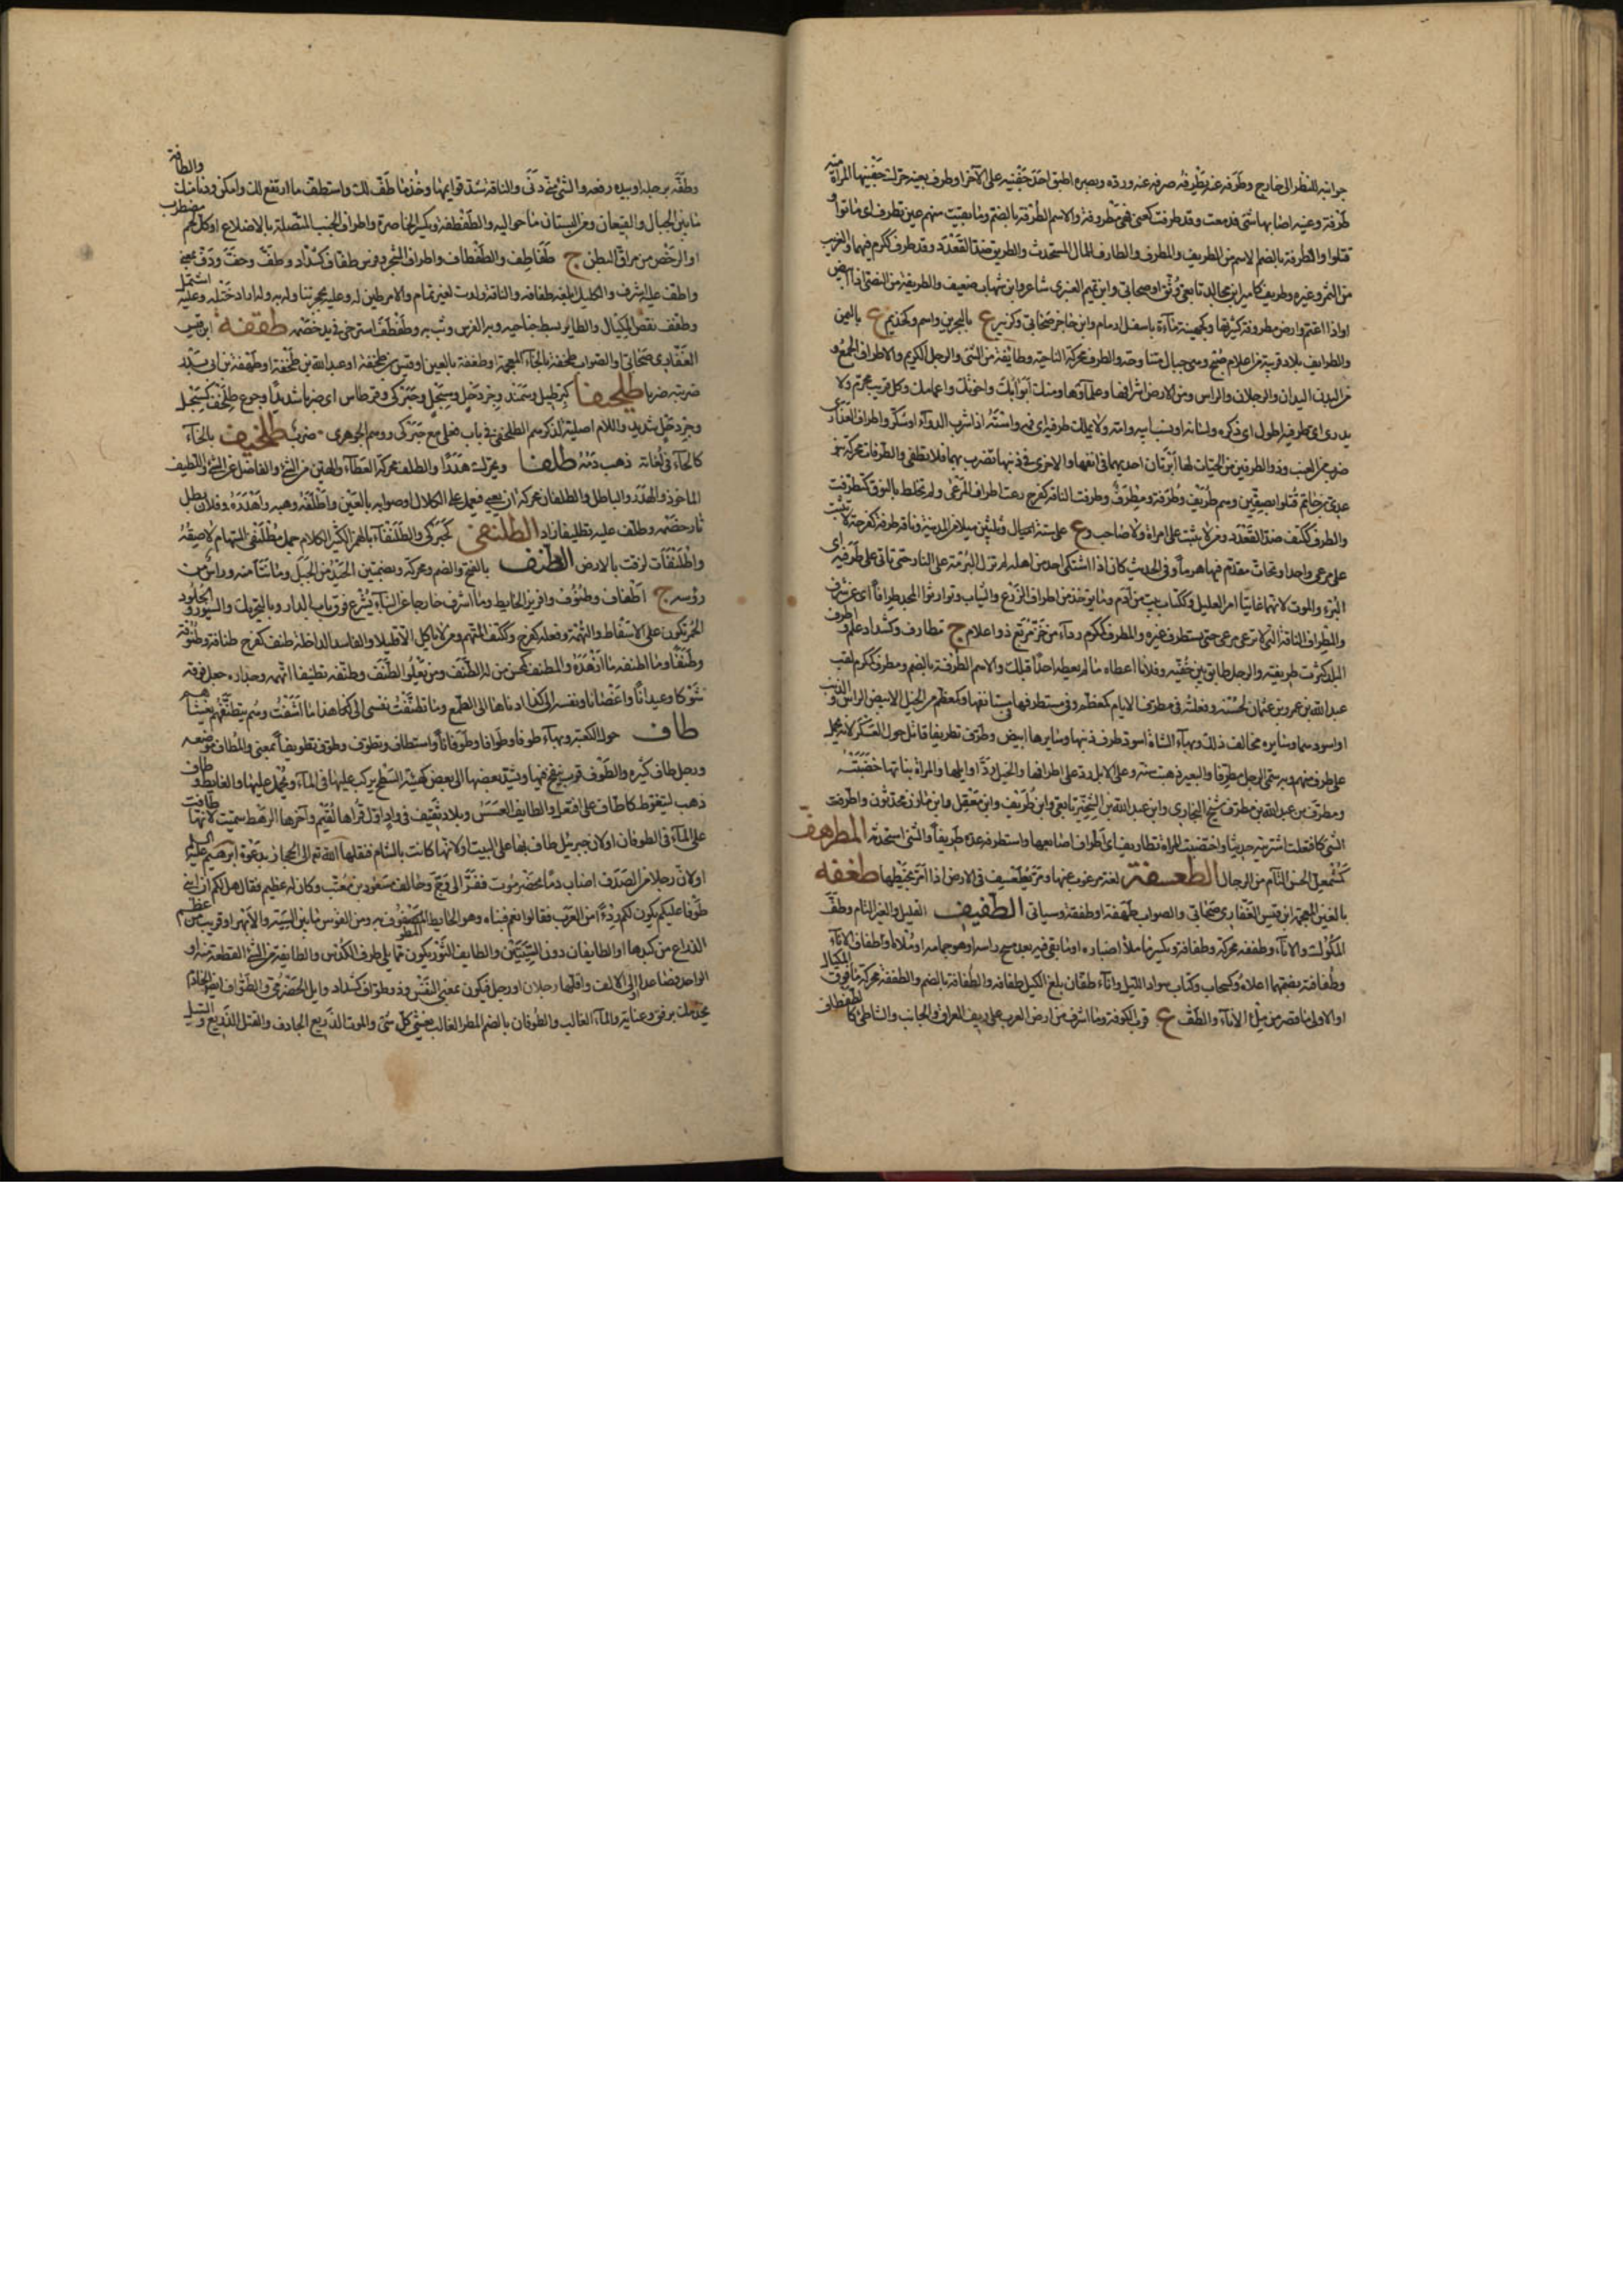 جوانبه للنظر الى خارج وطرفه عنه يطرفه صرفه عنه ورده وبصره اطبق احد جفنيه على الآخر او طرف بعينه حرك جفنيها المرة منه
طرفة وعينه اصابها بشئ فدمعت وقد طرفت كعنى فهى مطروفة والاسم الطرفة بالضم وما بقيت منهم عين تطرف اى ماتوا و
قتلوا والطرفة بالضم الاسم من الطريف والمطرف والطارف للمال المستحدث والطريق ضد القعدد وقد طرف ككرم فيهما والغريب
من الثمر وغيره وطريف كامير ابن مجالد تابعى وثق او صحابى وابن تميم العنبرى شاعر وابن شهاب ضعيف والطريفة من النصى اذا ابيض
او اذا اعتم وارض مطروفة كثيرتها وكجهينة ماءة باسفل ارمام وابن حاجر صحابى وكزبير ع بالبحرين واسم وكحذيم ع باليمن
والطرايف بلاد قريبة من اعلام صبح وهى جبال متناوحة والطرف محركة الناحية وطايفة من الشئ والرجل الكريم والاطراف الجمع و
من البدن اليدان والرجلان والراس ومن الارض اشرافها وعلماؤها ومنك ابواك واخوتك واعمامك وكل قريب محرم ولا
يدرى اى طرفيه اطول اى ذكره ولسانه او نسب ابيه وامه ولا يملك طرفيه اى فمه واسته اذا شرب الدواء او سكر واطراف العذارى
ضرب من العنب وذو الطرفين من الحيات لها ابرتان احديهما فى انفها والاخرى فى ذنبها تضرب بهما فلا تطنى والطرفات محركة بنو
عدى بن حاتم قتلوا بصفين وهم طريف وطرفة ومطرف وطرفت الناقة كفرح رعت اطراف المرعى ولم تختلط بالنوق كتطرفت
والطرف ككتف ضد القعدد ومن لا يثبت على امرأة ولا صاحب وع على ستة اميال وثلثين ميلا من المدينة وناقة طرفة كفرحة لا تثبت
على مرعى واحد او تحات مقدم فيها هرما وفى الحديث كان اذا اشتكى احد من اهله لم تزل البرمة على النار حتى تاتى على طرفيه اى
البرء والموت لانهما غايتا امر العليل وككتاب بيت من ادم وما يوخذ من اطراف الزرع والسباب وتوارثوا المجد طرافا اى عن شرف
والمطراف الناقة التى لا ترعى مرعى حتى تستطرف غيره والمطرف ككرم رداء من خز مربع ذو اعلام ج مطارف وكشداد علم واطرف
البلد كثرت طريفته والرجل طابق بين جفنيه وفلانا اعطاه ما لم يعطه احدا قبلك والاسم الطرفة بالضم ومطرف ككرم لقب
عبد الله بن عمرو بن عثمان لحسنه وفعلته فى مطرف الايام كمعظم وفى مستطرفها فى مستانفها وكمعظم من الخيل الابيض الراس والذنب
او اسودهما وسايره مخالف ذلك وبهاء الشاة اسود طرف ذنبها وسايرها ابيض وطرف تطريفا قاتل حول العسكر لانه يحمل
على طرف منهم وبه سمى الرجل مطرفا والبعير ذهبت سنه وعلى الابل رد على اطرافها والخيل رد اوايلها والمراة بنانها خضبته
ومطرف بن عبد الله بن مطرف شيخ البخارى وابن عبد الله بن الشخير تابعى وابن طريف وابن معقل وابن مازن محدثون واطرفت
الشئ كافتعلت اشتريته حديثا واختضبت المراة تطاريف اى اطراف اصابعها واستطرفه عده طريفا والشئ استحدثه المطرهف
كمشمعل الحسن التام من الرجال الطعسفة لغة مرغوب عنها ومر يطعسف فى الارض اذا مر يخبطها طغفة
بالغين المعجمة ابن قيس الغفارى صحابى والصواب طهفة او طخفة وسياتى الطفيف القليل والغير التام وطف
المكوك والاناء وطففه محركة وطفافه ويكسر ما ملأ اصباره او ما بقى فيه بعد مسح راسه او هو جمامه او ملاؤه واطفاف الاناء
وطفافته بضمهما اعلاه وكسحاب وكتاب سواد الليل واناء طفان بلغ الكيل طفافه والطفافة بالضم والطففة محركة ما فوق المكيال
او الاولى ما قصر من ملء الاناء والطف ع قرب الكوفة وما اشرف من ارض العرب على ريف العراق والجانب والشاطئ كالطفطاف
وطفه برجله او بيده رفعه والشئ منه دنى والناقة شد قوايمها وخذ ما طف لك واستطف ما ارتفع لك وامكن ودنا منك والطافة
ما بين الجبال والقيعان ومن البستان ما حواليه والطفطفة ويكسر الخاصرة واطراف الجنب المتصلة بالاضلاع او كل لحم مضطرب
او الرخص من مراق البطن ج طفاطف والطفطاف واطراف الشجر وفرس طفاف كشداد وطف وخف ودف بمعنى
واطف عليه اشرف والكليل بلغه طفافه والناقة ولدت لغير تمام والامر طبن له وعليه بحجر تناوله به وله اراد ختله وعليه اشتمل
وطفف نقص المكيال والطاير بسط جناحيه وبه الفرس وثب به وطفطف استرخى فى يد خصمه طقفة ابن قيس
الغفارى صحابى والصواب طخفة بالخاء المعجمة او طغفة بالغين او قيس بن طخفة او عبد الله بن طخفة او طهفة بن ابى
ضربته ضربا طلحفا كبرطيل وسمند وجردحل وسبحل وحبركى وقرطاس اى ضربا شديدا وجوع طلحف كسبحل
وجردحل شديد واللام اصلية لذكرهم الطلحفى فى باب فعلى مع حبركى ووهم الجوهرى ضرب طلخيف بالخاء
كالحاء فى لغاته ذهب دمه طلفا ويحرك هدرا والطلف محركة العطاء والهين من الشئ والفاضل عن الشئ والطليف
الماخوذ والهدر والباطل والطلفان محركة ان يعيى فيعمل على الكلال او صوابه بالغين واطلفه وهبه واهدره وفلان بطل
ثار خصمه وطلف عليه تطليفا زاد الطلنفى كحبركى والطلنفاء بالهمز الكثير الكلام جمل مطلنفى السنام لاصقه
واطلنفأت لزقت بالارض الطنف بالفتح والضم ومحركة وبضمتين الحيد من الجبل وما نتأ منه وراس من
رؤسه ج اطناف وطنوف وافريز الحايط وما اشرف خارجا عن البناء يشرع فوق باب الدار وبالتحريك والسيور والجلود
الحمر تكون على الاسفاط والتهمة وفعله كفرح وككتف المتهم ومن لا ياكل الا قليلا والفاسد الداخلة طنف كفرح طنافة وطنوفة
وطنفا وما اطنفه ما ازهده والمطنف كمحسن من له الطنف ومن يعلو الطنف وطنفه تطنيفا اتهمه وجداره جعل فوقه
شوكا وعيدانا واغصانا ونفسه الى كذا ادناها الى الطمع وما تطنفت نفسى الى كذا هذا ما اشفت وهم يتطنفهم يغشاهم
طاف حول الكعبة وبهاء طوفا وطوافا وطوفانا واستطاف وتطوف وطوف تطويفا بمعنى والمطاف موضعه
ورجل طاف كثيره والطوف قرب ينفخ فيها ويشد بعضها الى بعض كهيئة السطح يركب عليها فى الماء ويحمل عليها والغايط وطاف
ذهب ليتغوط كاطاف على افتعل والطايف العسس وبلاد ثقيف فى واد اول قراها لقيم وآخرها الوهط سميت لانها طافت
على الماء فى الطوفان او لان جبريل طاف بها على البيت او لانها كانت بالشام فنقلها الله تعالى الى الحجاز بدعوة ابرهيم عليه السلام
او لان رجلا من الصدف اصاب دما بحضرموت ففر الى وج وحالف مسعود بن معتب وكان له مال عظيم فقال هل لكم ان ابنى
طوفا عليكم يكون لكم ردءا من العرب فقالوا نعم فبناه وهو الحايط المطوف به ومن القوس ما بين السية والابهر او قريب من عظم
الذراع من كبدها او الطايفان دون السيتين والطايف الثور يكون مما يلى طرف الكدس والطايفة من الشئ القطعة منه او
الواحد فصاعدا او الى الالف واقلها رجلان او رجل فيكون بمعنى النفس وذو طواف كشداد وايل الحضرمى والطواف ايضا الخادم
يخدمك برفق وعناية والماء الغالب والطوفان بالضم المطر الغالب يغشى كل شئ والموت الذريع الجارف والقتل الذريع والسيل